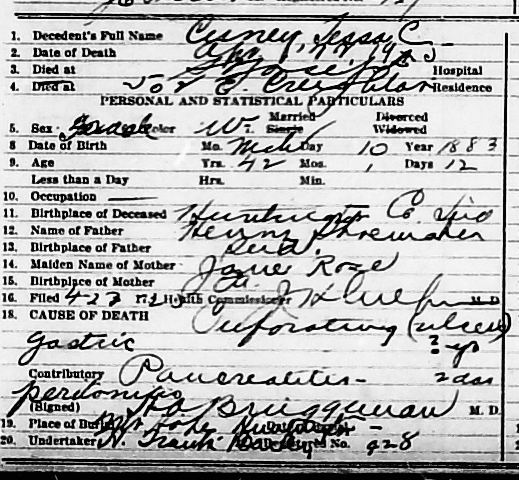 1. Decedent's Full Name Cuney, Jessy C
2. Date of Death Apr
3. Died at St Joseph Hospital
4. Died at 502 E. Creighton Residence
PERSONAL AND STATISTICAL PARTICULARS
5. Sex Female Color W 7. Married Single Divorced Widowed
8 Date of Birth Mo. Mch Day 10 Year 1883
9. Age Yrs. 42 Mos. 1 Days 12
Less than a Day Hrs. Min.
10. Occupation —
11. Birthplace of Deceased Huntington Co. Ind
12. Name of Father Henry Shoemaker
13. Birthplace of Father Ind.
14. Maiden Name of Mother Jane Rose
15. Birthplace of Mother
16. Filed 4 27 Health Commissioner M. D.
18. CAUSE OF DEATH Perforating (ulcer)
Gastric ? yr
Contributory Pancreatitis - 2 das
(Signed) Bruggeman M. D.
19. Place of Burial
20. Undertaker No. 928